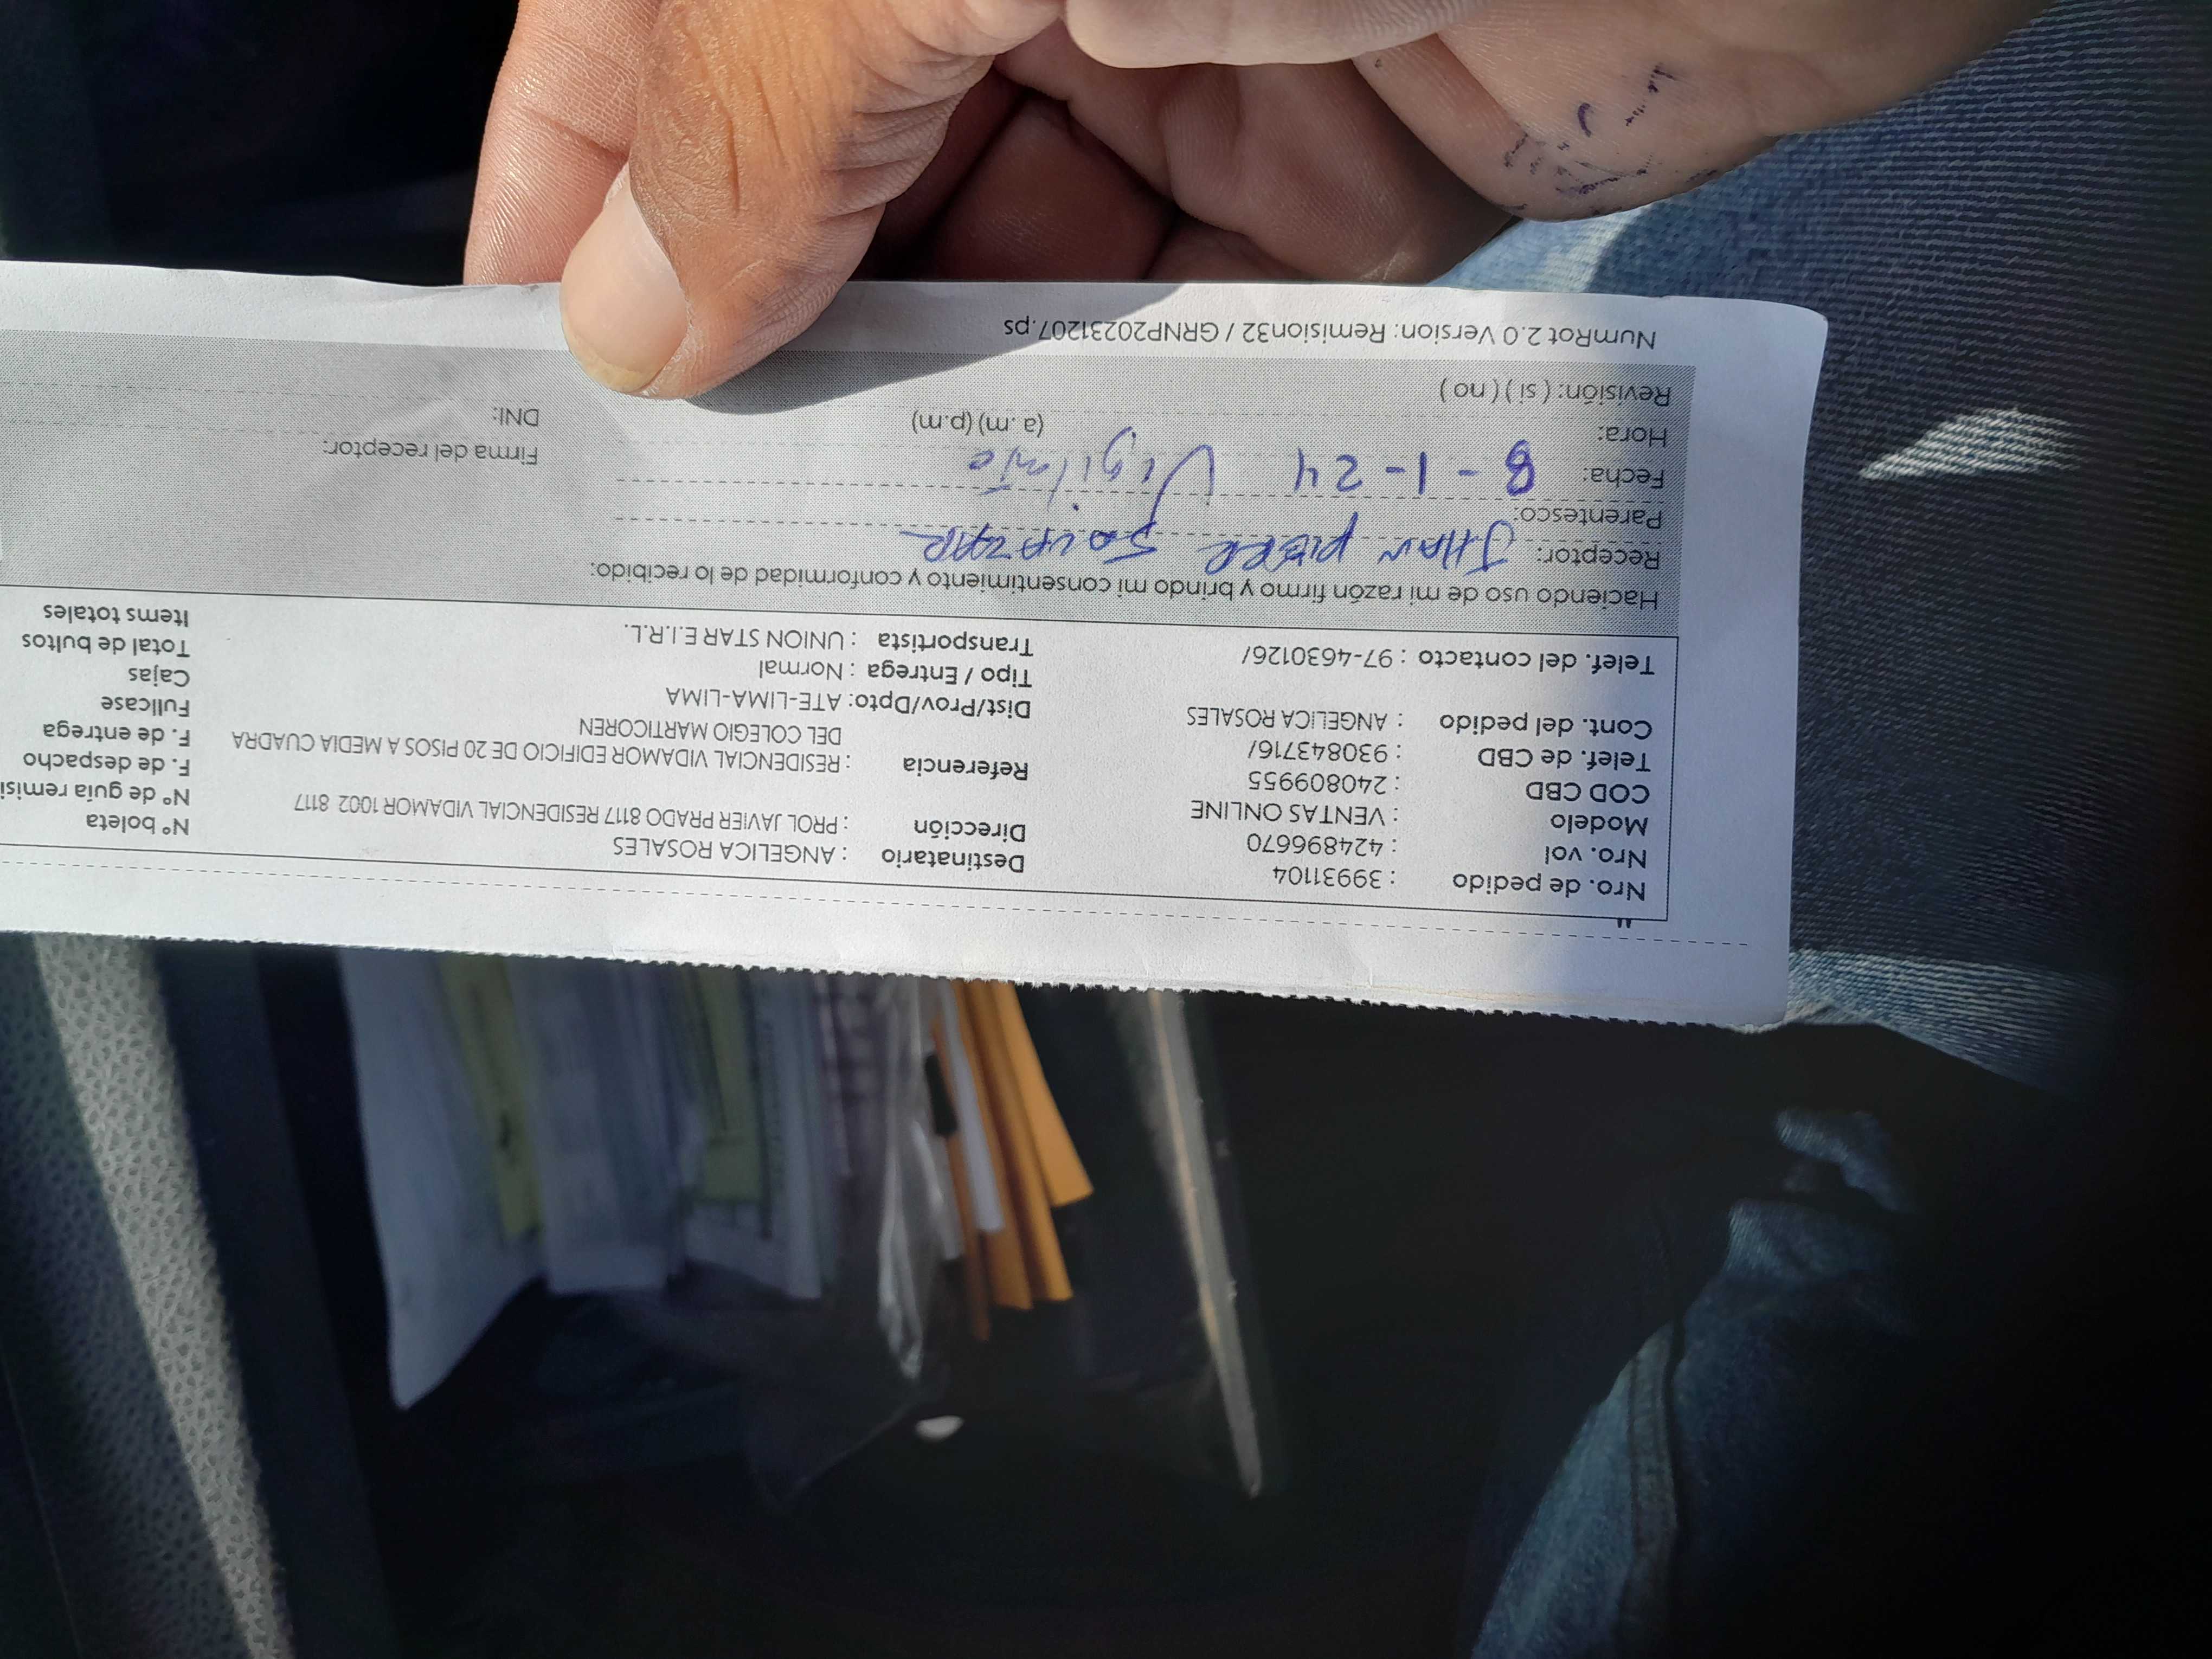 Nro. de pedido : 39931104 Destinatario : ANGELICA ROSALES Nº boleta
Nro. vol : 424896670 Dirección : PROL JAVIER PRADO 8117 RESIDENCIAL VIDAMOR 1002 8117 Nº de guía remisi
Modelo : VENTAS ONLINE F. de despacho
COD CBD : 240809955 Referencia : RESIDENCIAL VIDAMOR EDIFICIO DE 20 PISOS A MEDIA CUADRA F. de entrega
Telef. de CBD : 930843716/ DEL COLEGIO MARTICOREN Fullcase
Cont. del pedido : ANGELICA ROSALES Dist/Prov/Dpto: ATE-LIMA-LIMA Cajas
Tipo / Entrega : Normal Total de bultos
Telef. del contacto : 97-4630126/ Transportista : UNION STAR E.I.R.L. Items totales
Haciendo uso de mi razón firmo y brindo mi consentimiento y conformidad de lo recibido:
Receptor: JHAN PIERR SALAZAR
Parentesco:
Fecha: 8-1-24 Vigilante Firma del receptor:
Hora: (a .m) (p.m) DNI:
Revisión: ( si ) ( no )
NumRot 2.0 Version: Remision32 / GRNP20231207.ps